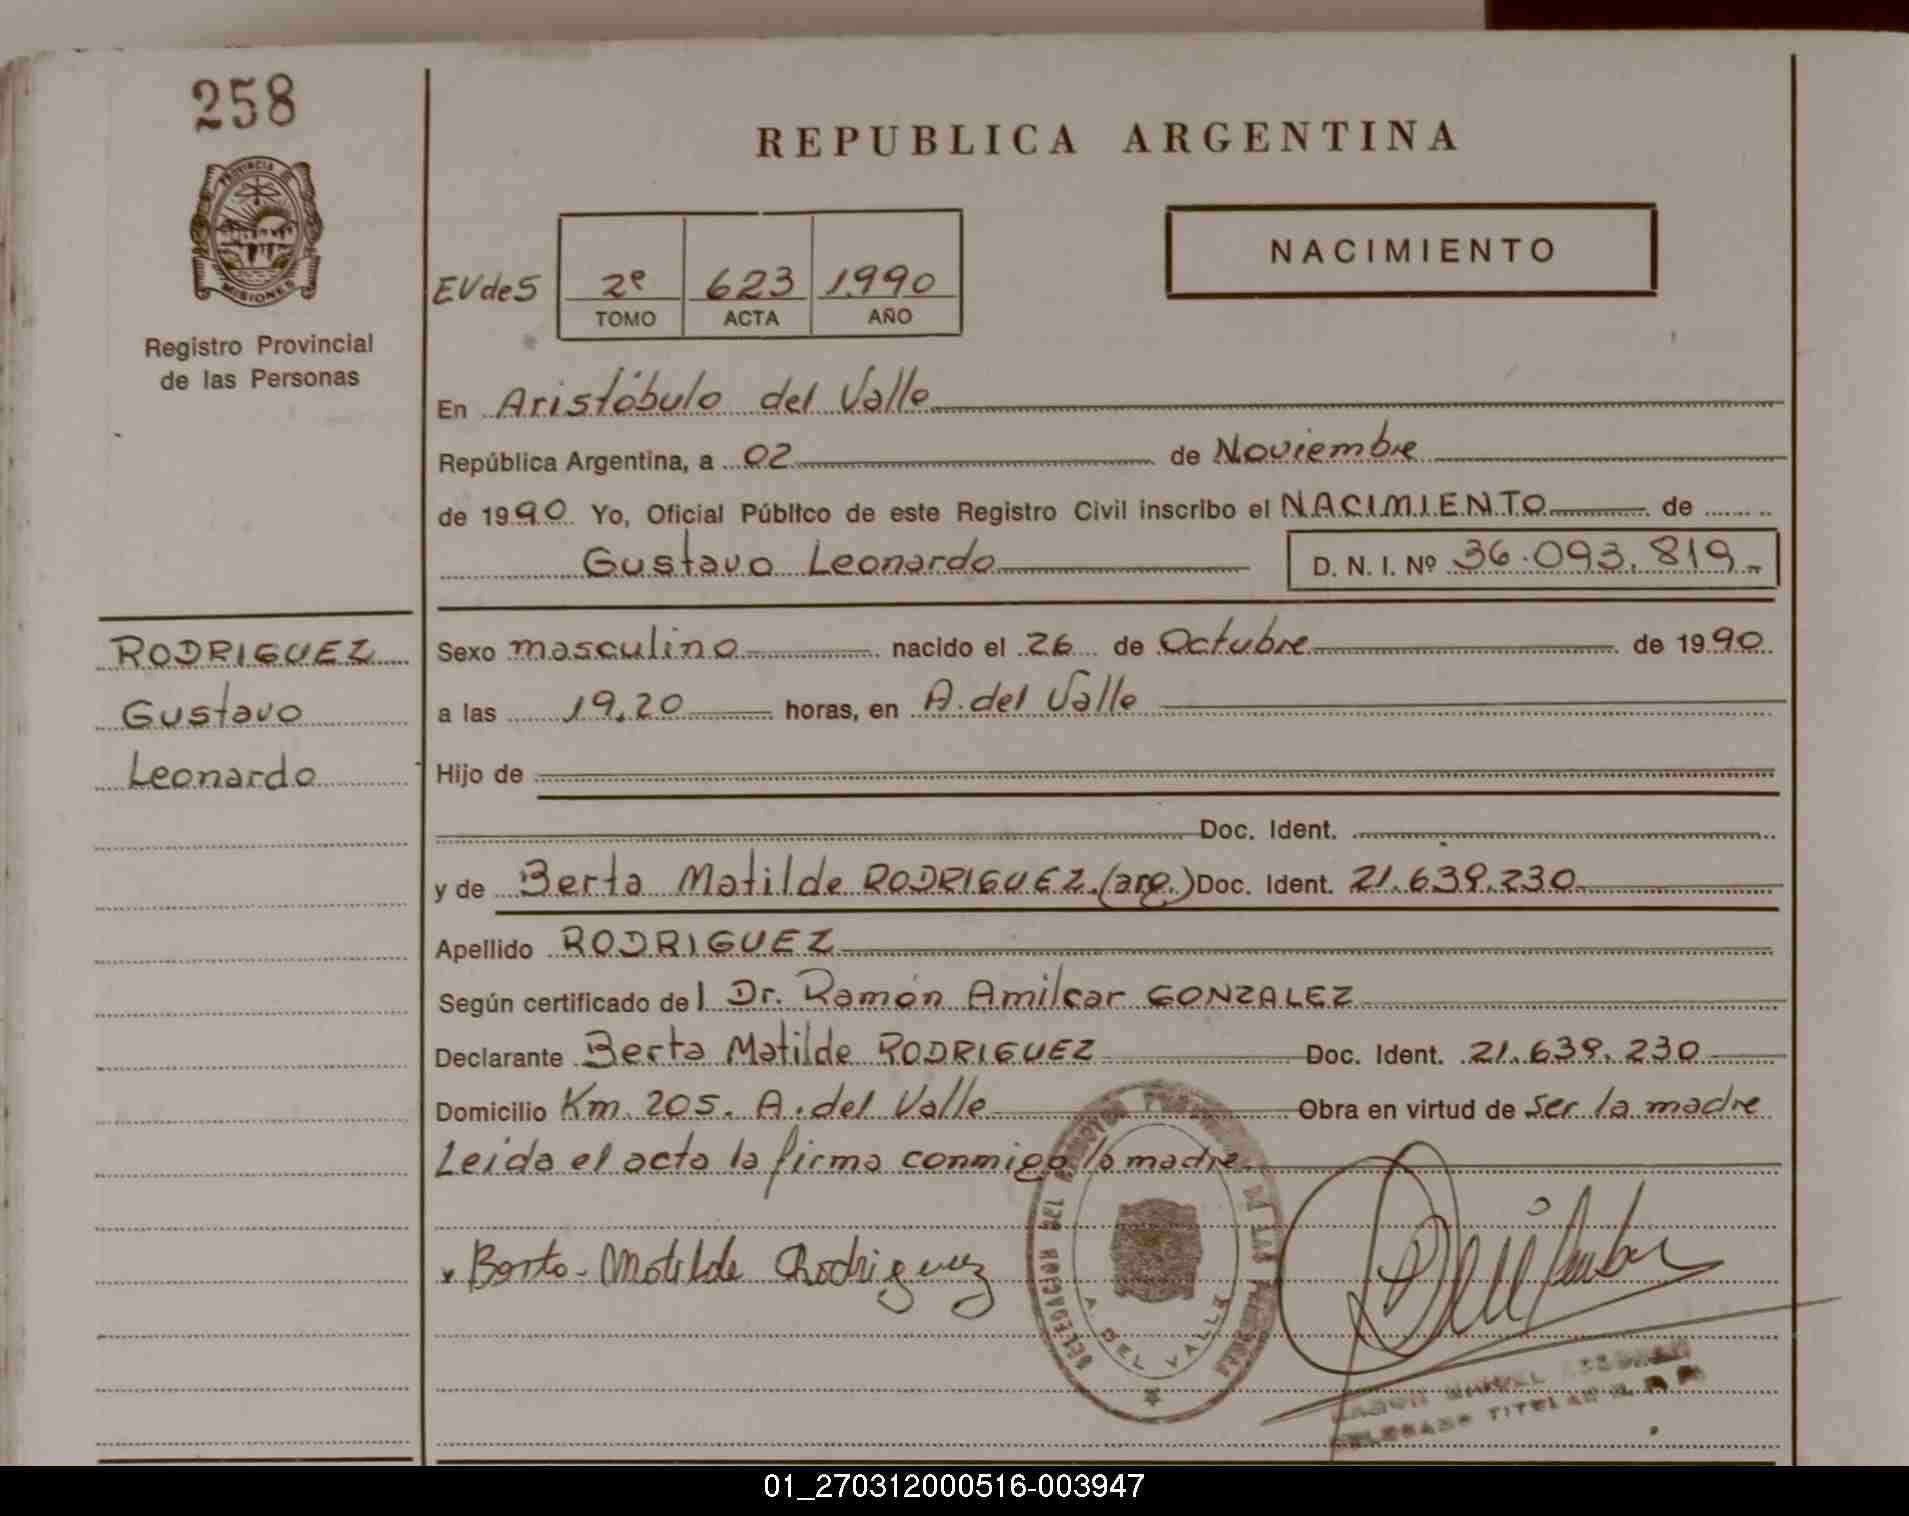 258
REPUBLICA ARGENTINA
PROVINCIA DE
MISIONES
Registro Provincial
de las Personas
NACIMIENTO
EVdeS 2º 623 1990
TOMO ACTA AÑO
En Aristóbulo del Valle
República Argentina, a 02 de Noviembre
de 1990 Yo, Oficial Público de este Registro Civil inscribo el NACIMIENTO de
Gustavo Leonardo D. N. I. Nº 36.093.819.-
RODRIGUEZ
Gustavo
Leonardo
Sexo masculino nacido el 26 de Octubre de 1990
a las 19,20 horas, en A. del Valle
Hijo de
Doc. Ident.
y de Berta Matilde RODRIGUEZ.(arg.) Doc. Ident. 21.639.230
Apellido RODRIGUEZ
Según certificado del Dr. Ramón Amilcar GONZALEZ
Declarante Berta Matilde RODRIGUEZ Doc. Ident. 21.639.230
Domicilio Km. 205. A. del Valle Obra en virtud de ser la madre
Leida el acta la firma conmigo la madre.
Berta Matilde Rodriguez
DELEGACION DEL DE LAS
A. DEL VALLE
MIGUEL
DELEGADO TITULAR R. P. P.
01_270312000516-003947